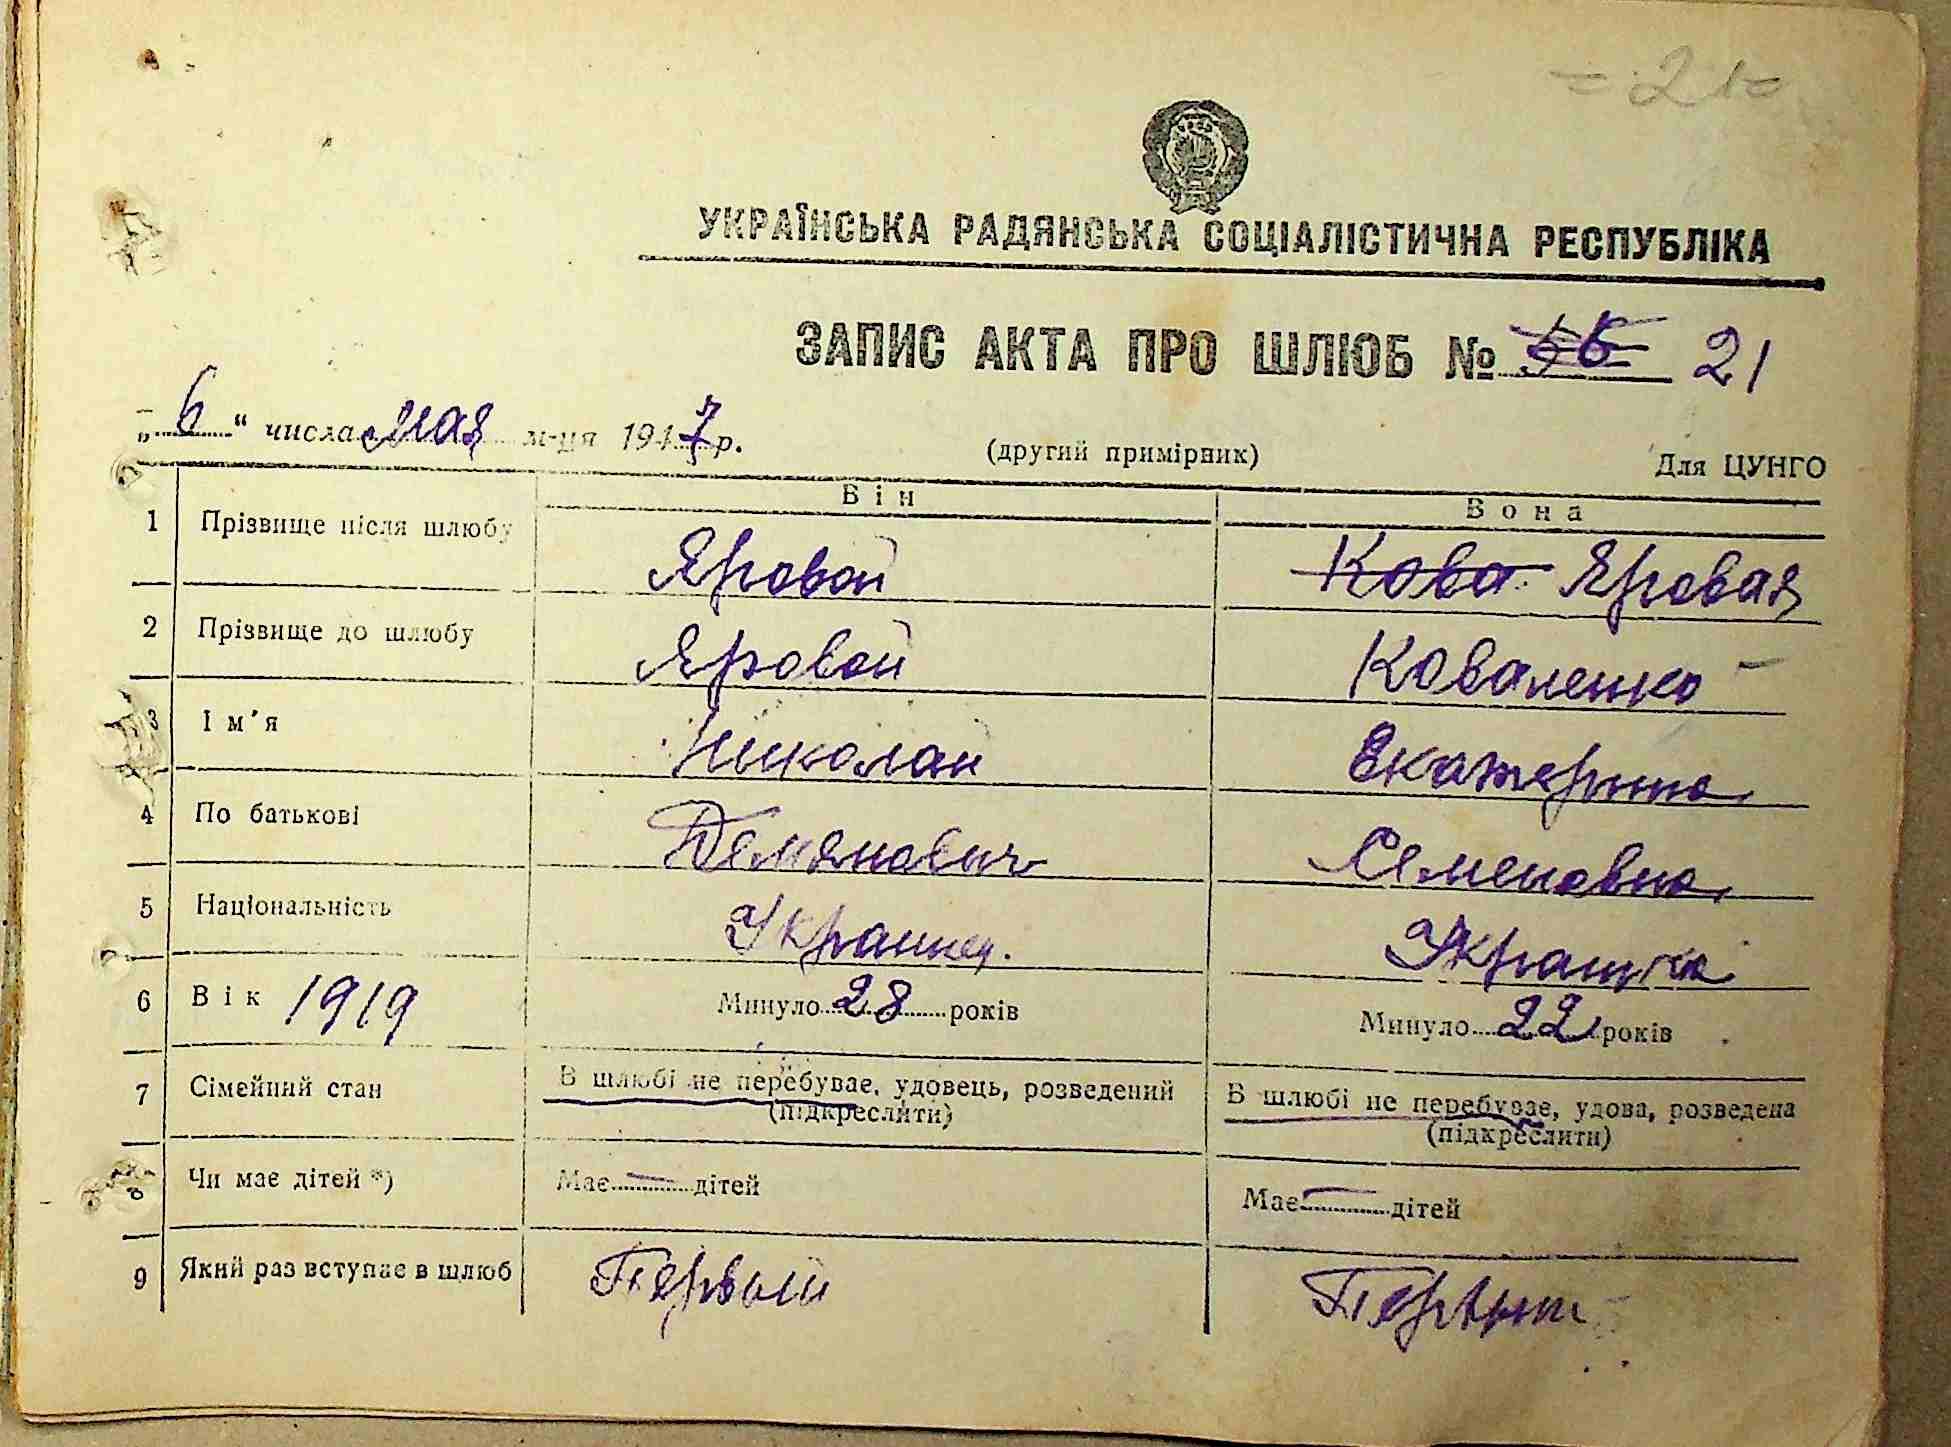 = 21=
УКРАЇНСЬКА РАДЯНСЬКА СОЦІАЛІСТИЧНА РЕСПУБЛІКА
ЗАПИС АКТА ПРО ШЛЮБ № 21
„6“ числа мая м-ця 1947 р.
(другий примірник) Для ЦУНГО
Він Вона
1 Прізвище після шлюбу Яровой Кова Яровая
2 Прізвище до шлюбу Яровой Коваленко
3 Ім'я Николай Екатерина
4 По батькові Демянович Семеновна
5 Національність Украинец. Украинка
6 Вік 1919 Минуло 28 років Минуло 22 років
7 Сімейний стан В шлюбі не перебуває, удовець, розведений В шлюбі не перебуває, удова, розведена
(підкреслити) (підкреслити)
8 Чи має дітей *) Має — дітей Має — дітей
9 Який раз вступає в шлюб Первый Первый